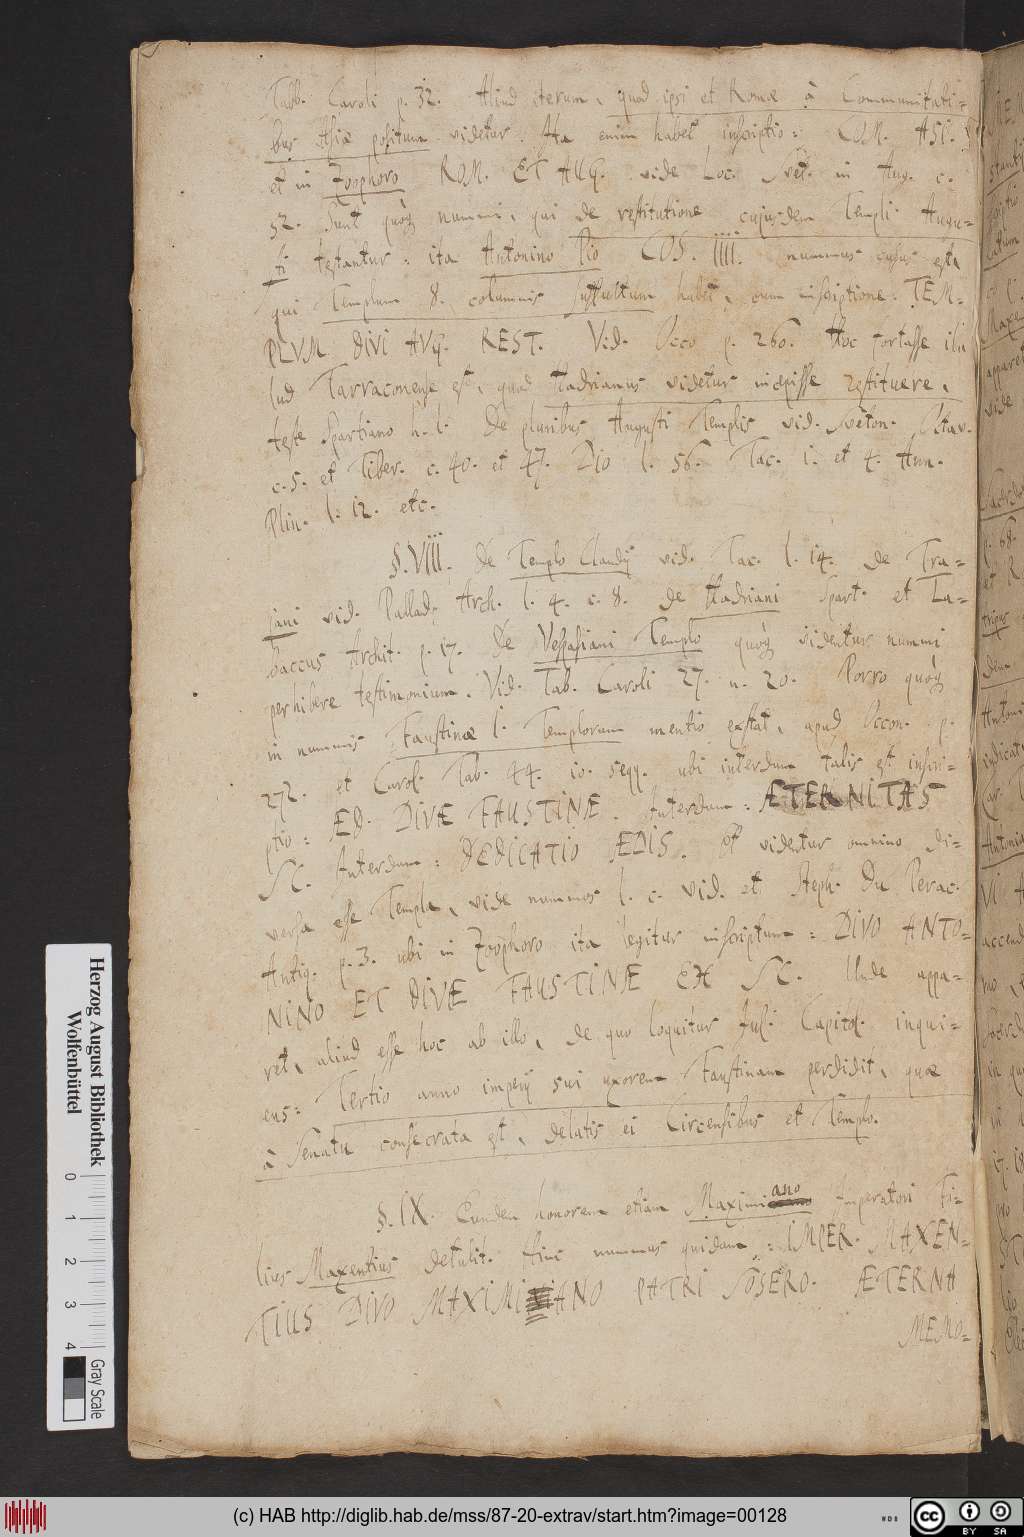 Tabb. Caroli p. 32. Aliud iterum, quod ipsi et Romæ à Communitati=
bus Asiæ positum videtur. Ita enim habet inscriptio: COM. ASI.
et in Zoophoro ROM. ET AUG. vide Loc. Svet. in Aug. c.
52. Sunt quoq nummi, qui de restitutione cujusdem Templi Augu=
sti testantur: ita Antonino Pio COS. IIII. nummus cusus est,
qui Templum 8. columnis suffultum habet, cum inscriptione: TEM=
PLVM DIVI AVG. REST. Vid. Occo p. 260. Hoc fortasse il=
lud Tarraconense est, quod Hadrianus videtur incepisse restituere,
teste Spartiano h. l. De pluribus Augusti Templis vid. Sveton. Octav.
c. 5. et Tiber. c. 40. et 47. Dio l. 56. Tac. 1. et 4. Ann.
Plin. l. 12. etc.
§. VIII. De Templo Claudij vid. Tac. l. 14. De Tra=
jani vid. Pallad. Arch. l. 4. c. 8. de Hadriani Spart. et La=
baccus Archit. p. 17. De Vespasiani Templo quoq videntur nummi
perhibere testimonium. Vid. Tab. Caroli 27. n. 20. Porro quoq
in nummis Faustinæ Templorum mentio exstat, apud Occon. p.
272. et Carol. Tab. 44. 10. seqq. ubi interdum talis est inscri=
ptio: ÆD. DIVÆ FAUSTINÆ. Interdum: ÆTERNITAS
SC. Interdum: DEDICATIO ÆDIS. Et videntur omnino di=
versa esse Templa, vide nummos l. c. vid. et Steph. Du Perac.
Antiq. p. 3. ubi in Zoophoro ita legitur inscriptum: DIVO ANTO=
NINO ET DIVÆ FAUSTINÆ EX SC. Unde appa=
ret, aliud esse hoc ab illo, de quo loquitur Jul. Capitol. inqui=
ens: Tertio anno imperij sui uxorem Faustinam perdidit, quæ
à Senatu consecrata est, delatis ei Circensibus et Templo.
§. IX. Eundem honorem etiam Maximiano Imperatori Fi=
lius Maxentius detulit. Hinc nummus quidam: IMPER. MAXEN=
TIUS DIVO MAXIMIANO PATRI SOSERO. ÆTERNA
MEMO=
Herzog August Bibliothek
Wolfenbüttel
0 1 2 3 4
Gray Scale
(c) HAB http://diglib.hab.de/mss/87-20-extrav/start.htm?image=00128
cc BY SA